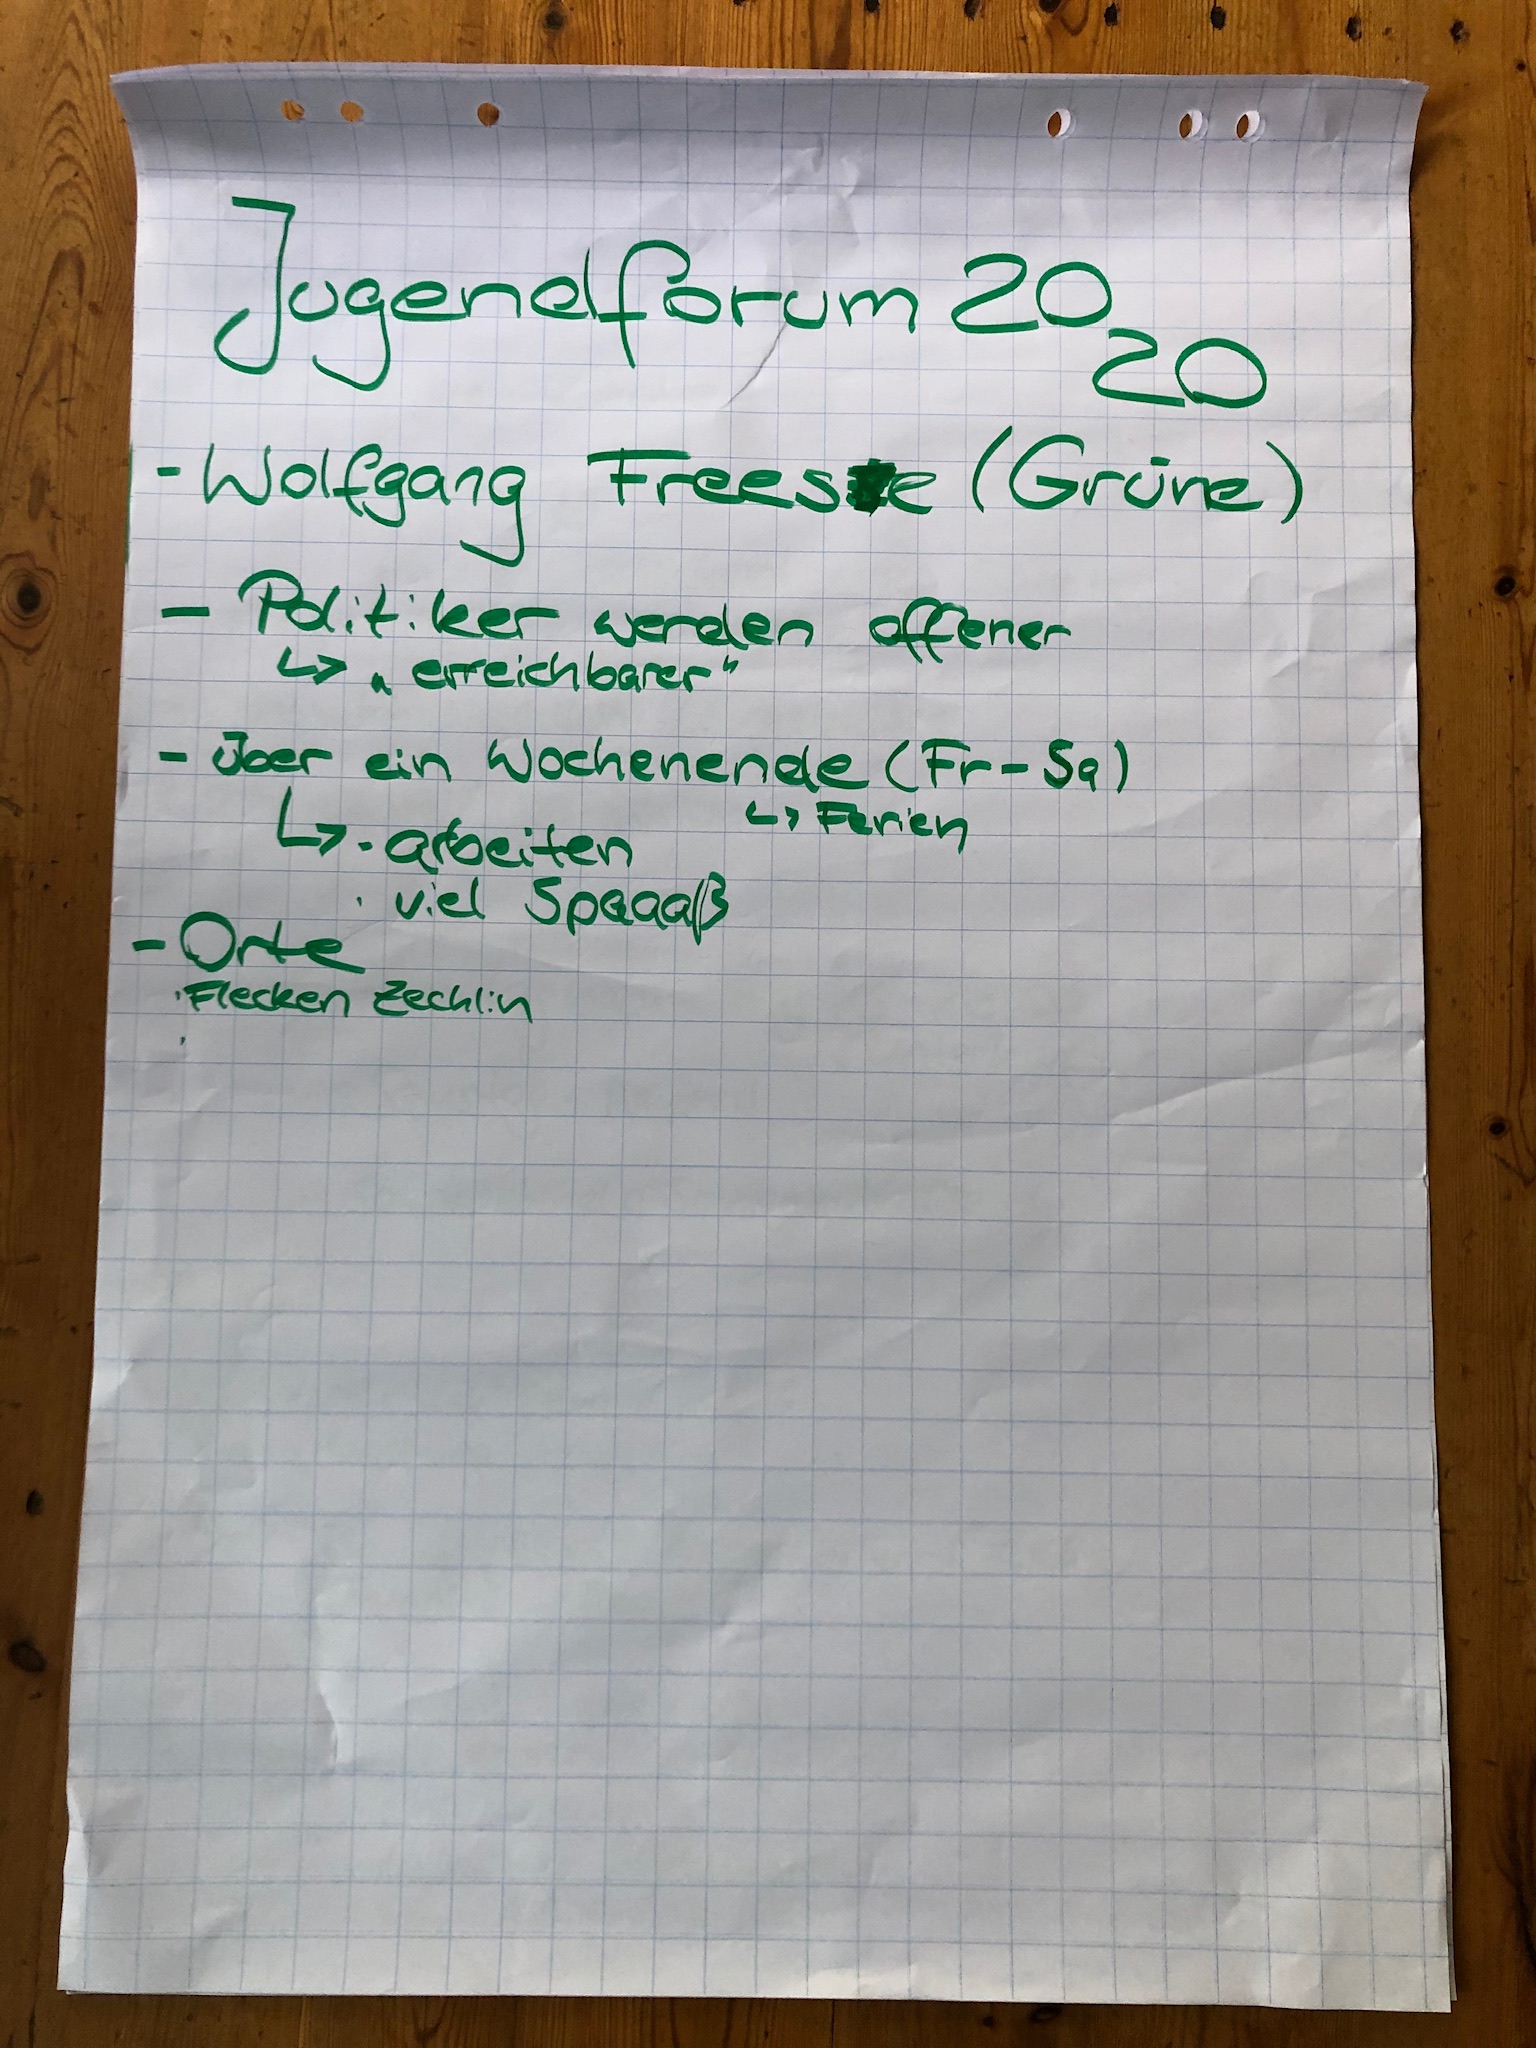 Jugendforum 20
20
- Wolfgang Freese (Grüne)
- Politiker werden offener
↳ „erreichbarer“
- über ein Wochenende (Fr-Sa)
↳ Ferien
↳ · arbeiten
· viel Spaaaß
- Orte
· Flecken Zechlin
·